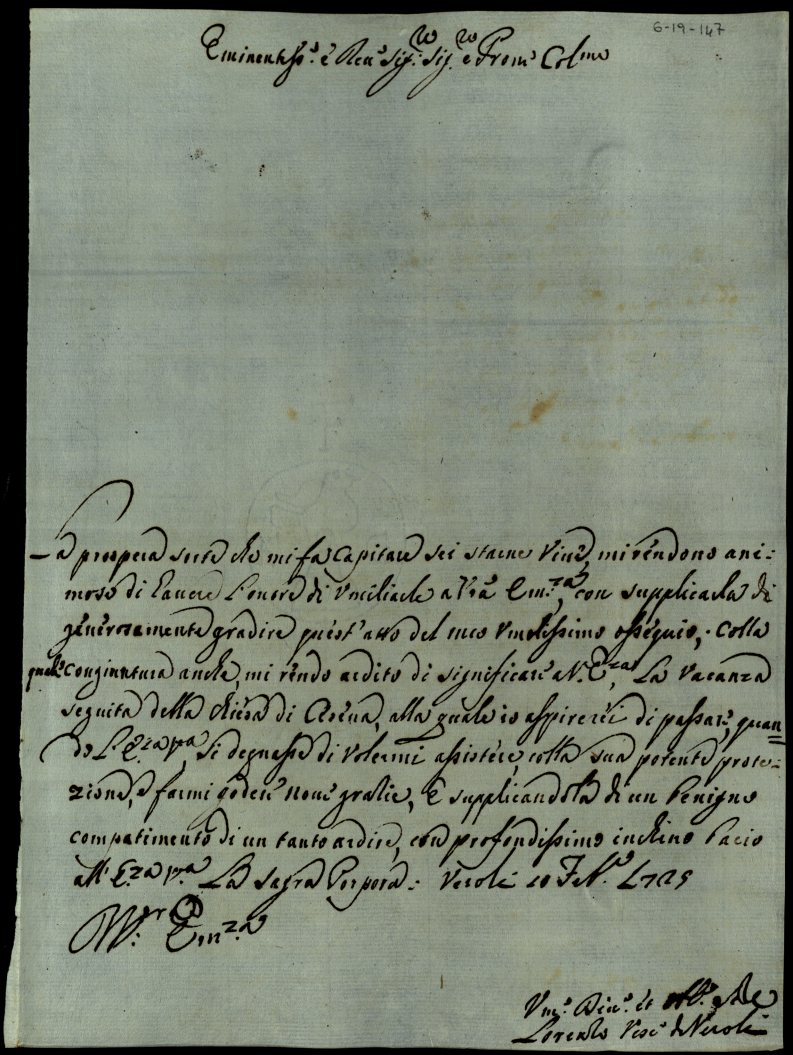 6-19-147
Eminentiss.o e Reu.o Sig.r Sig.r e Pron.e Col.mo
La prospera sorte che mi fa capitare sei starne viue, mi rendono ani:
moso di hauere l'onore di Vmiliarle a Vra Em.za, con supplicarla di
generosamente gradire quest'atto del mio Vmilissimo ossequio, colla
quale congiuntura anche, mi rendo ardito di significare a V. E.za, La vacanza
seguita della chiesa di, alla quale io aspirerei di passare, quan=
do L'E.za V.a si degnasse di volermi assistere colla sua potente prote:
zione, e farmi godere noue grazie, E supplicandola di un benigno
compatimento di un tanto ardire, con profondissimo inchino bacio
all'E.za V.a La Sagra Porpora: Veroli 10 1725
Em.za
Vm.o Deu.o et Obb.
Lorenzo Vesc.o di Veroli